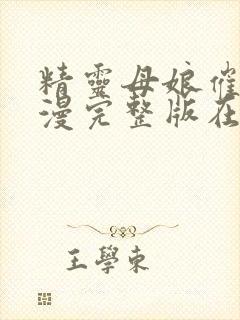 精靈母娘催
漫完整版在
王學東